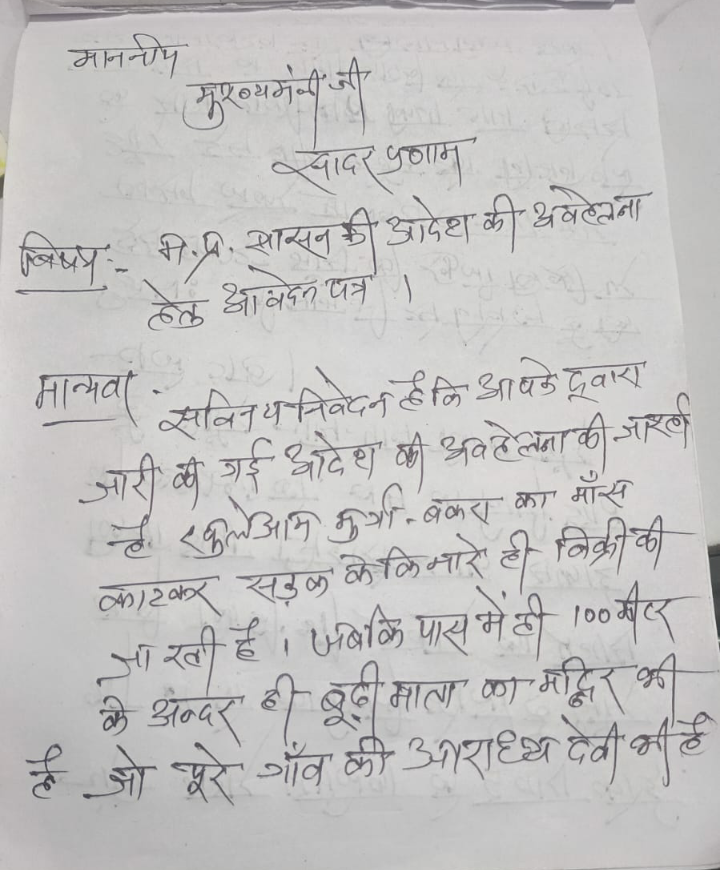 माननीय
मुख्यमंत्री जी
सादर प्रणाम
बिषय :- म.प्र. सासन की आदेश की अवहेलना
हेतु आवेदन पत्र ।
मान्यवर .
सविनय निवेदन है कि आपके द्वारा
जारी की गई आदेश की अवहेलना की जारही
है. खुलेआम मुर्गा - बकरा का माँस
काटकर सड़क के किनारे ही बिक्री की
जा रही है । जबकि पास में ही 100 मीटर
के अन्दर ही बूढ़ी माता का मन्दिर भी
है जो पूरे गाँव की आराध्य देवी भी है